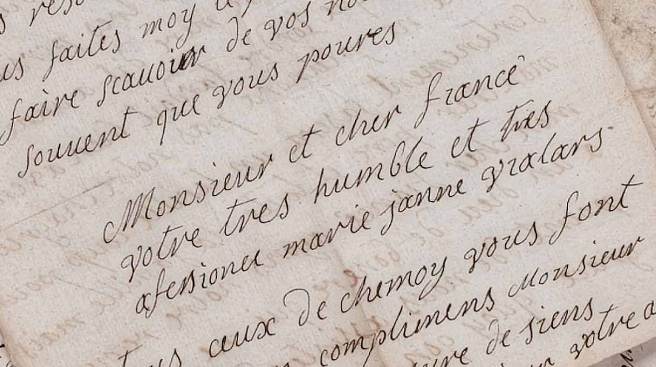 faites moy
faire scauoir de vos
souuent que vous poures
Monsieur et cher francé
votre tres humble et tres
afersionee marie janne vialars
ceux de chemoy vous font
complimens Monsieur
de siens
votre